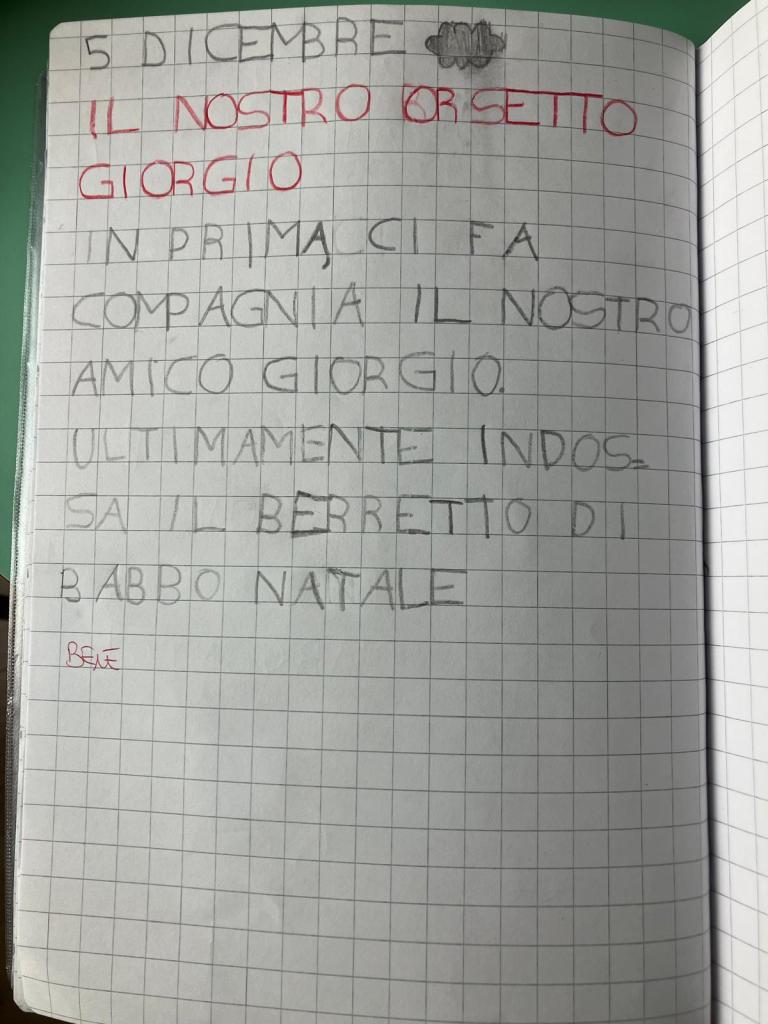 5 DICEMBRE
IL NOSTRO ORSETTO
GIORGIO
IN PRIMA CI FA
COMPAGNIA IL NOSTRO
AMICO GIORGIO.
ULTIMAMENTE INDOS=
SA IL BERRETTO DI
BABBO NATALE
BENE